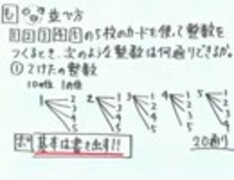 も 並べ方
1 2 3 4 5の5枚のカードを使って整数を
つくるとき、次のような整数は何通りできるか。
① 2けたの整数
10の位 1の位
1 2 3 4 5
2 1 3 4 5
3 1 2 4 5
4 1 2 3 5
5 1 2 3 4
基本は書き出す!!
20通り